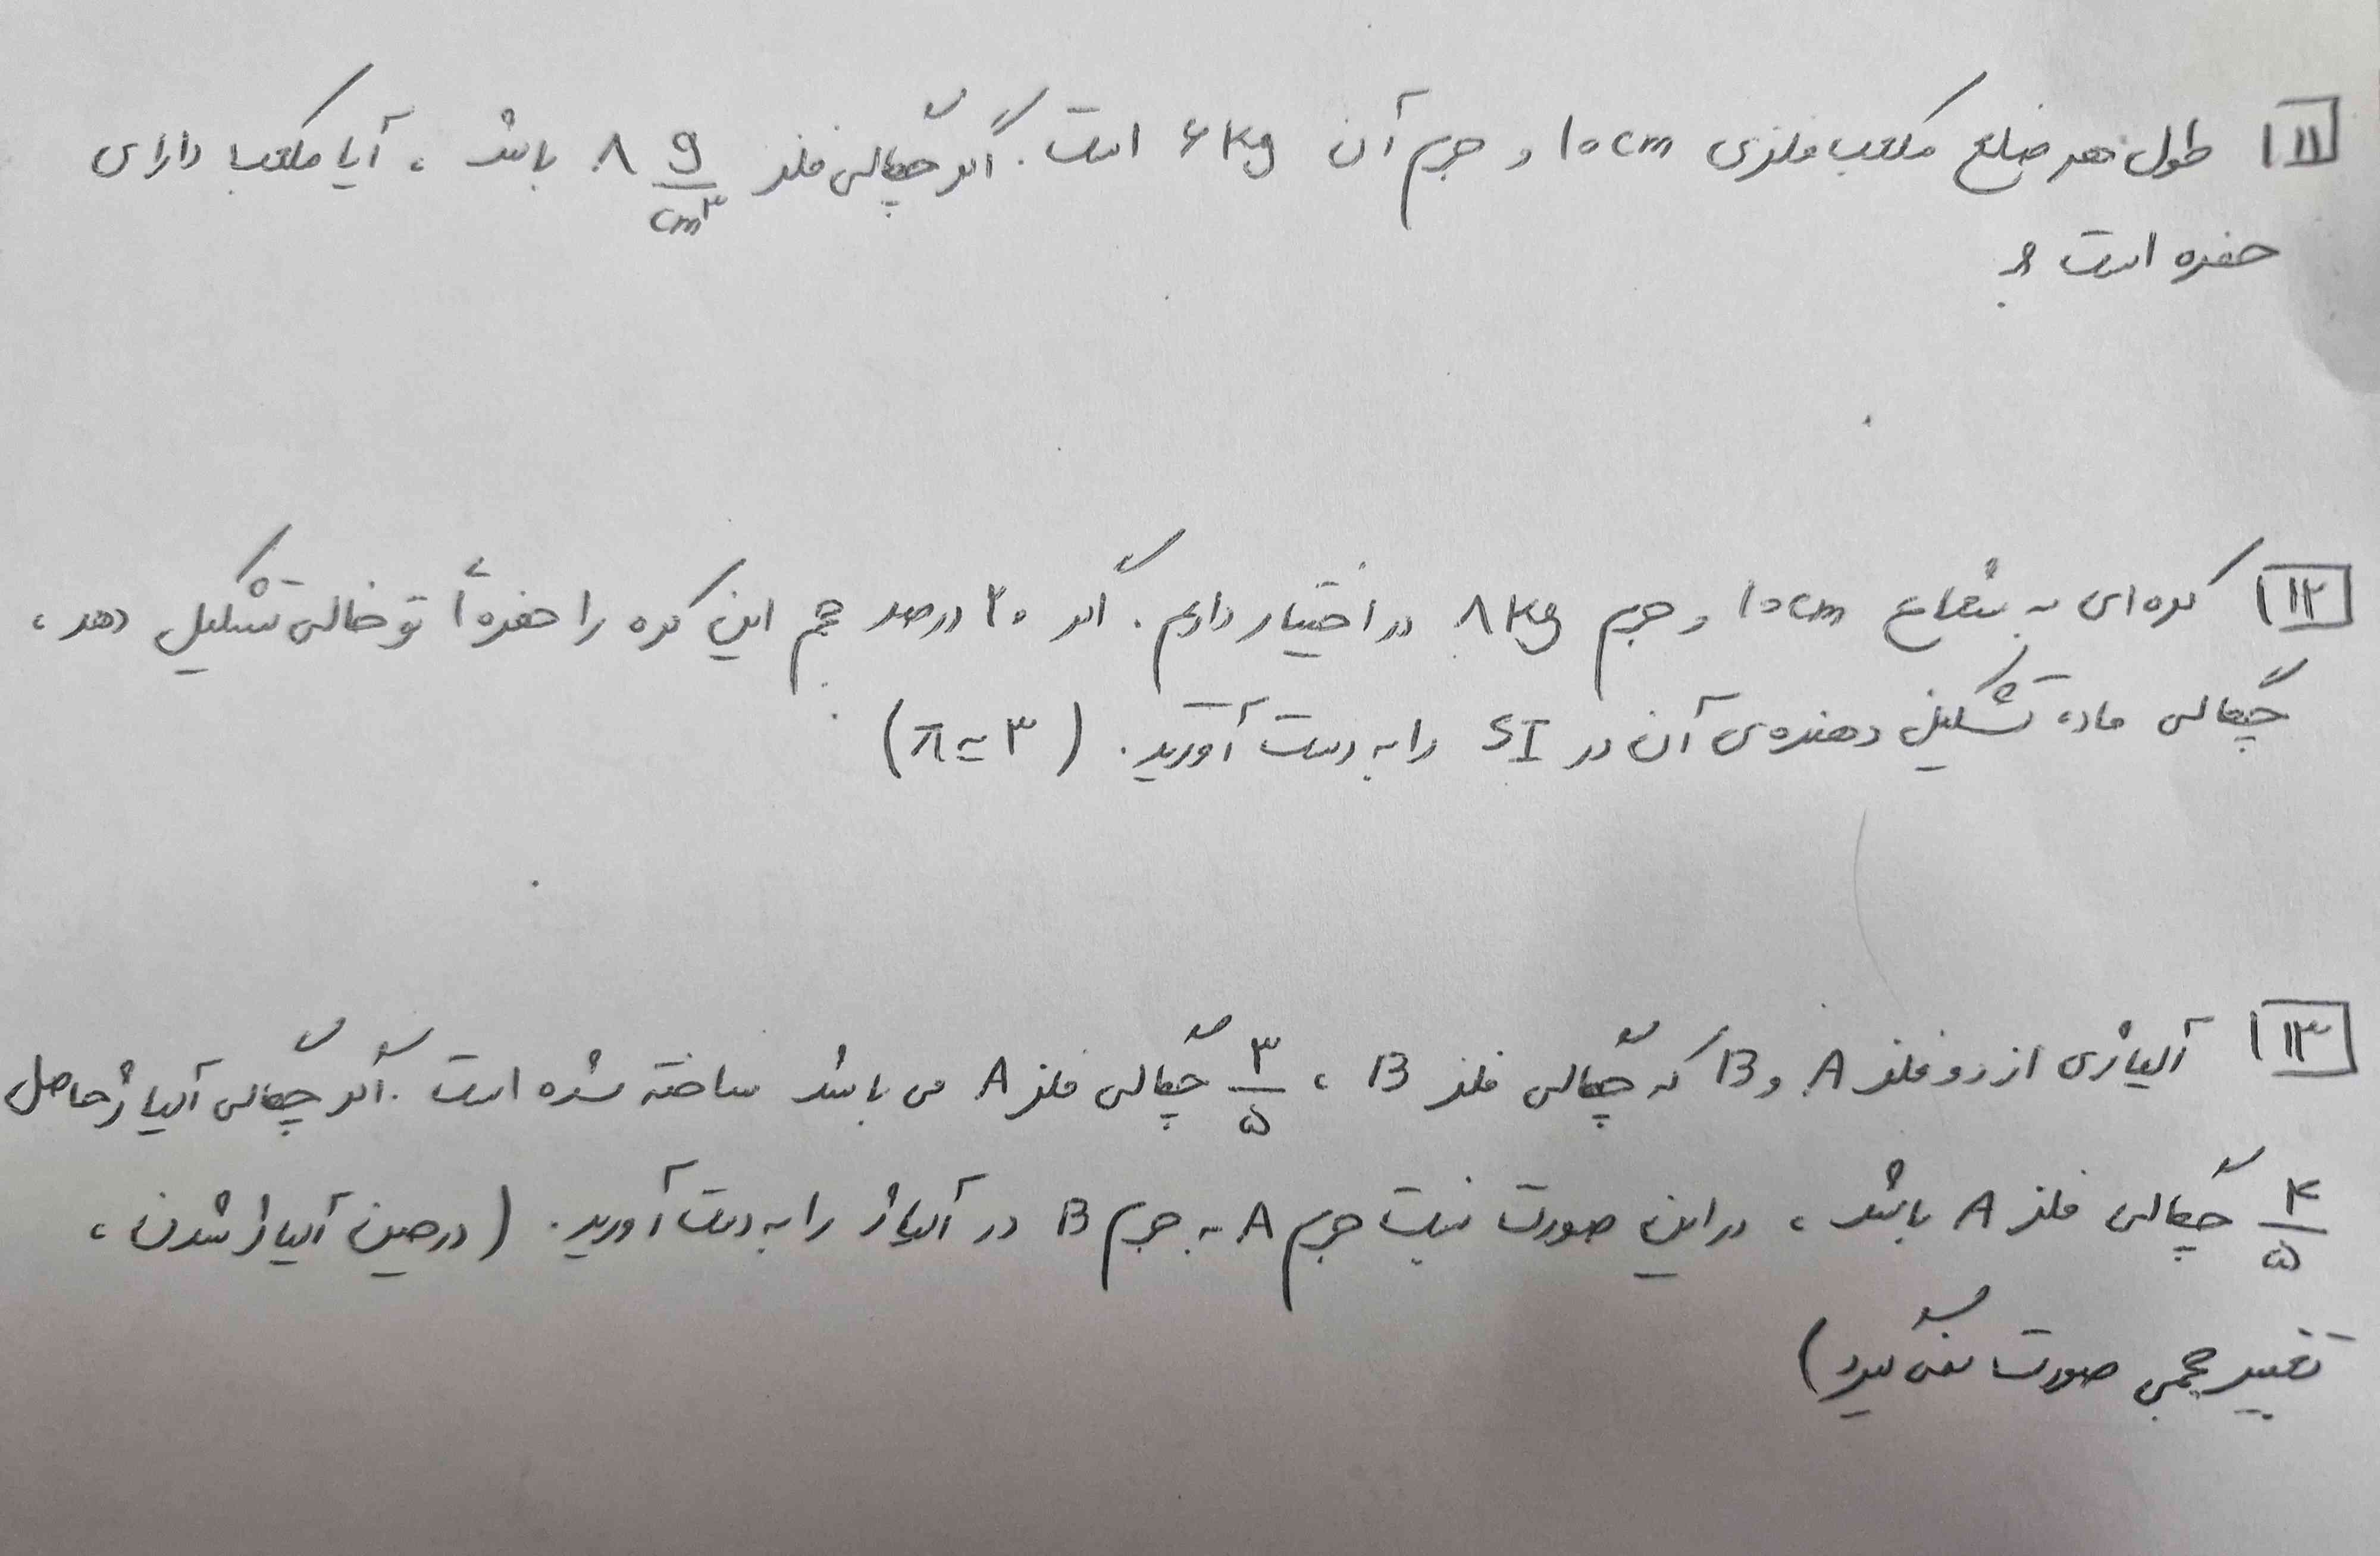 ۱۱ طول هر ضلع مکعب فلزی ۱۰cm و جرم آن ۶kg است. اگر چگالی فلز ۸ g/cm³ باشد ، آیا مکعب دارای
حفره است ؟
۱۲ کره‌ای به شعاع ۱۰cm و جرم ۸kg در اختیار داریم. اگر ۲۰ درصد حجم این کره را حفره‌ٔ توخالی تشکیل دهد ،
چگالی ماده تشکیل دهنده‌ی آن در SI را به دست آورید. (π≃۳)
۱۳ آلیاژی از دو فلز A و B که چگالی فلز B ، ۳/۵ چگالی فلز A می باشد ساخته شده است. اگر چگالی آلیاژ حاصل
۴/۵ چگالی فلز A باشد ، در این صورت نسبت جرم A به جرم B در آلیاژ را به دست آورید. (در حین آلیاژ شدن ،
تغییر حجمی صورت نمی گیرد)